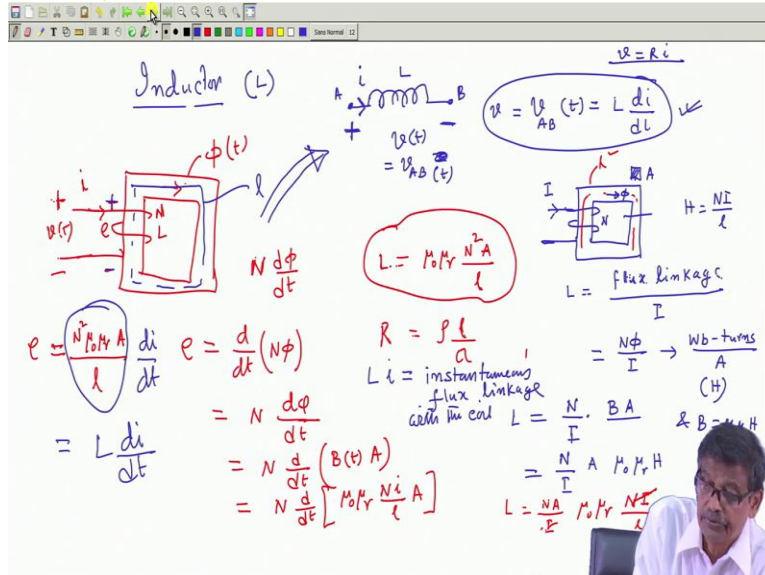 Sans Normal 12
Inductor (L)
i L
A B
+ -
v(t)
= v_AB (t)
v = Ri
v = v_AB (t) = L di/dt
φ(t)
l
+ i +
v(t) e N
L
- -
N dφ/dt
L = μ₀μᵣ N²A/l
l
A
I → φ
N
H = NI/l
L = flux linkage / I
= Nφ/I → Wb-turns/A
(H)
e = N²μ₀μᵣA/l di/dt
= L di/dt
e = d/dt (Nφ)
= N dφ/dt
= N d/dt (B(t) A)
= N d/dt [μ₀μᵣ Ni/l A]
R = ρ l/a
Li = instantaneous
flux linkage
with the coil
L = N/I · BA
& B = H
= N/I A μ₀μᵣ H
L = NA/I μ₀μᵣ NI/l